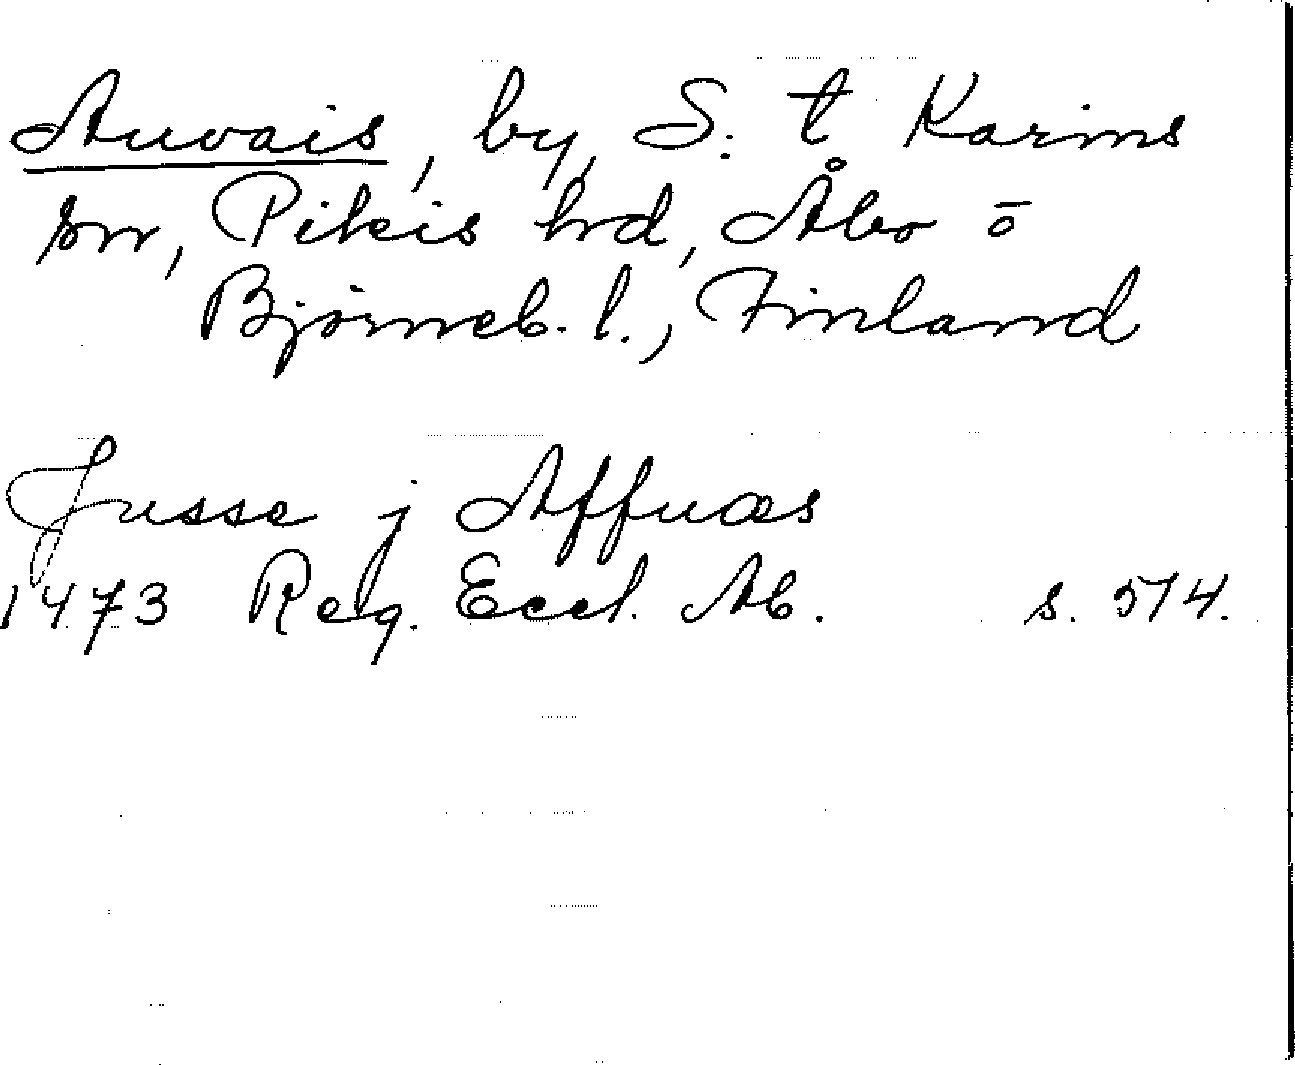 Auvais, by, S:t Karins
sn, Pikis hrd, Åbo o
Björneb. l., Finland
Jusse j Affuæs
1473 Reg. Eccl. Ab. s. 574.